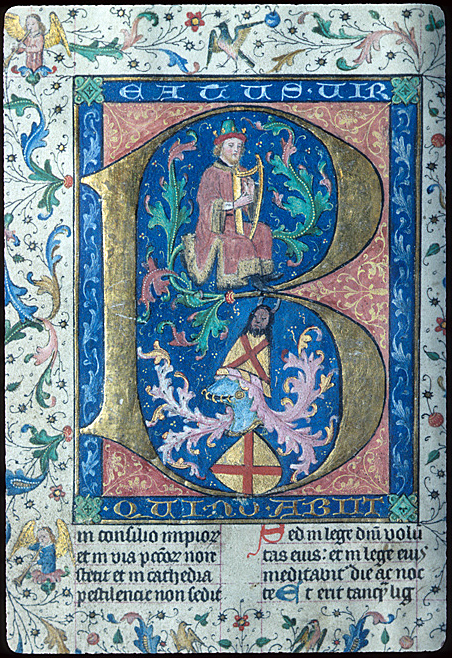 B
EATUS · VIR
QUI NO ABIIT
in consilio impior
et in via pctor non
stetit et in cathedra
pestilencie non sedit
Sed in lege dni volu
tas eius: et in lege eius
meditabit die ac noc
te Et erit tanq lig